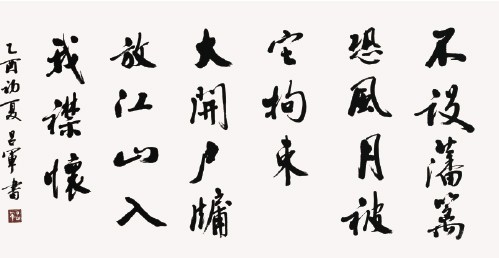 不设藩篱
恐风月被
它拘束
大開户牖
放江山入
我襟懷
乙酉初夏吕軍書